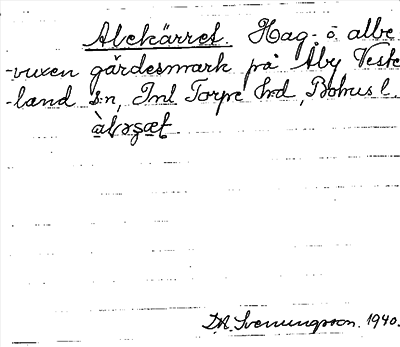 Alekärret. Hag- o. albe-
-vuxen gärdesmark på Åby Veste
-land s:n, Inl Torpe hrd, Bohus l.
D.A. Svenungsson. 1940.